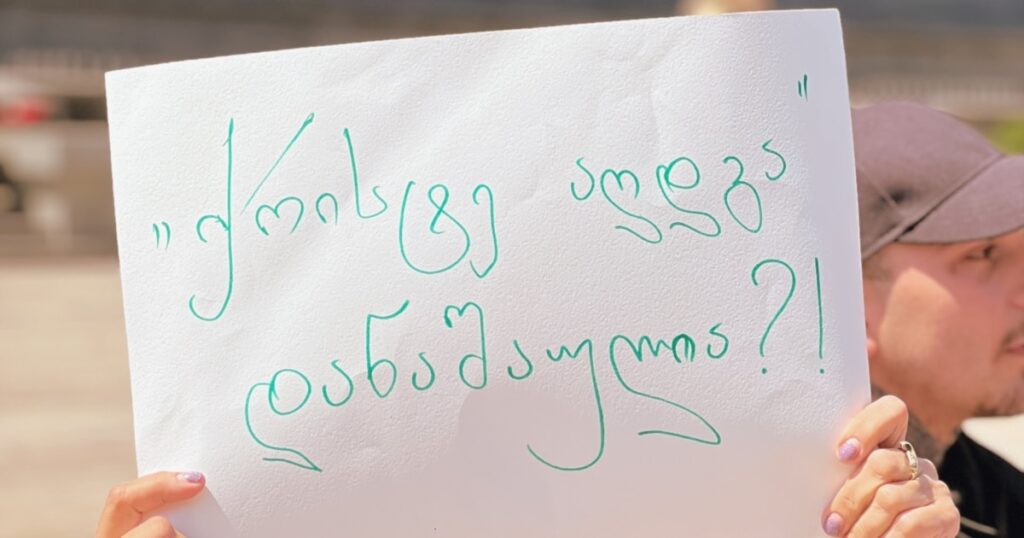 "ქრისტე აღდგა"
დანაშაულია?!